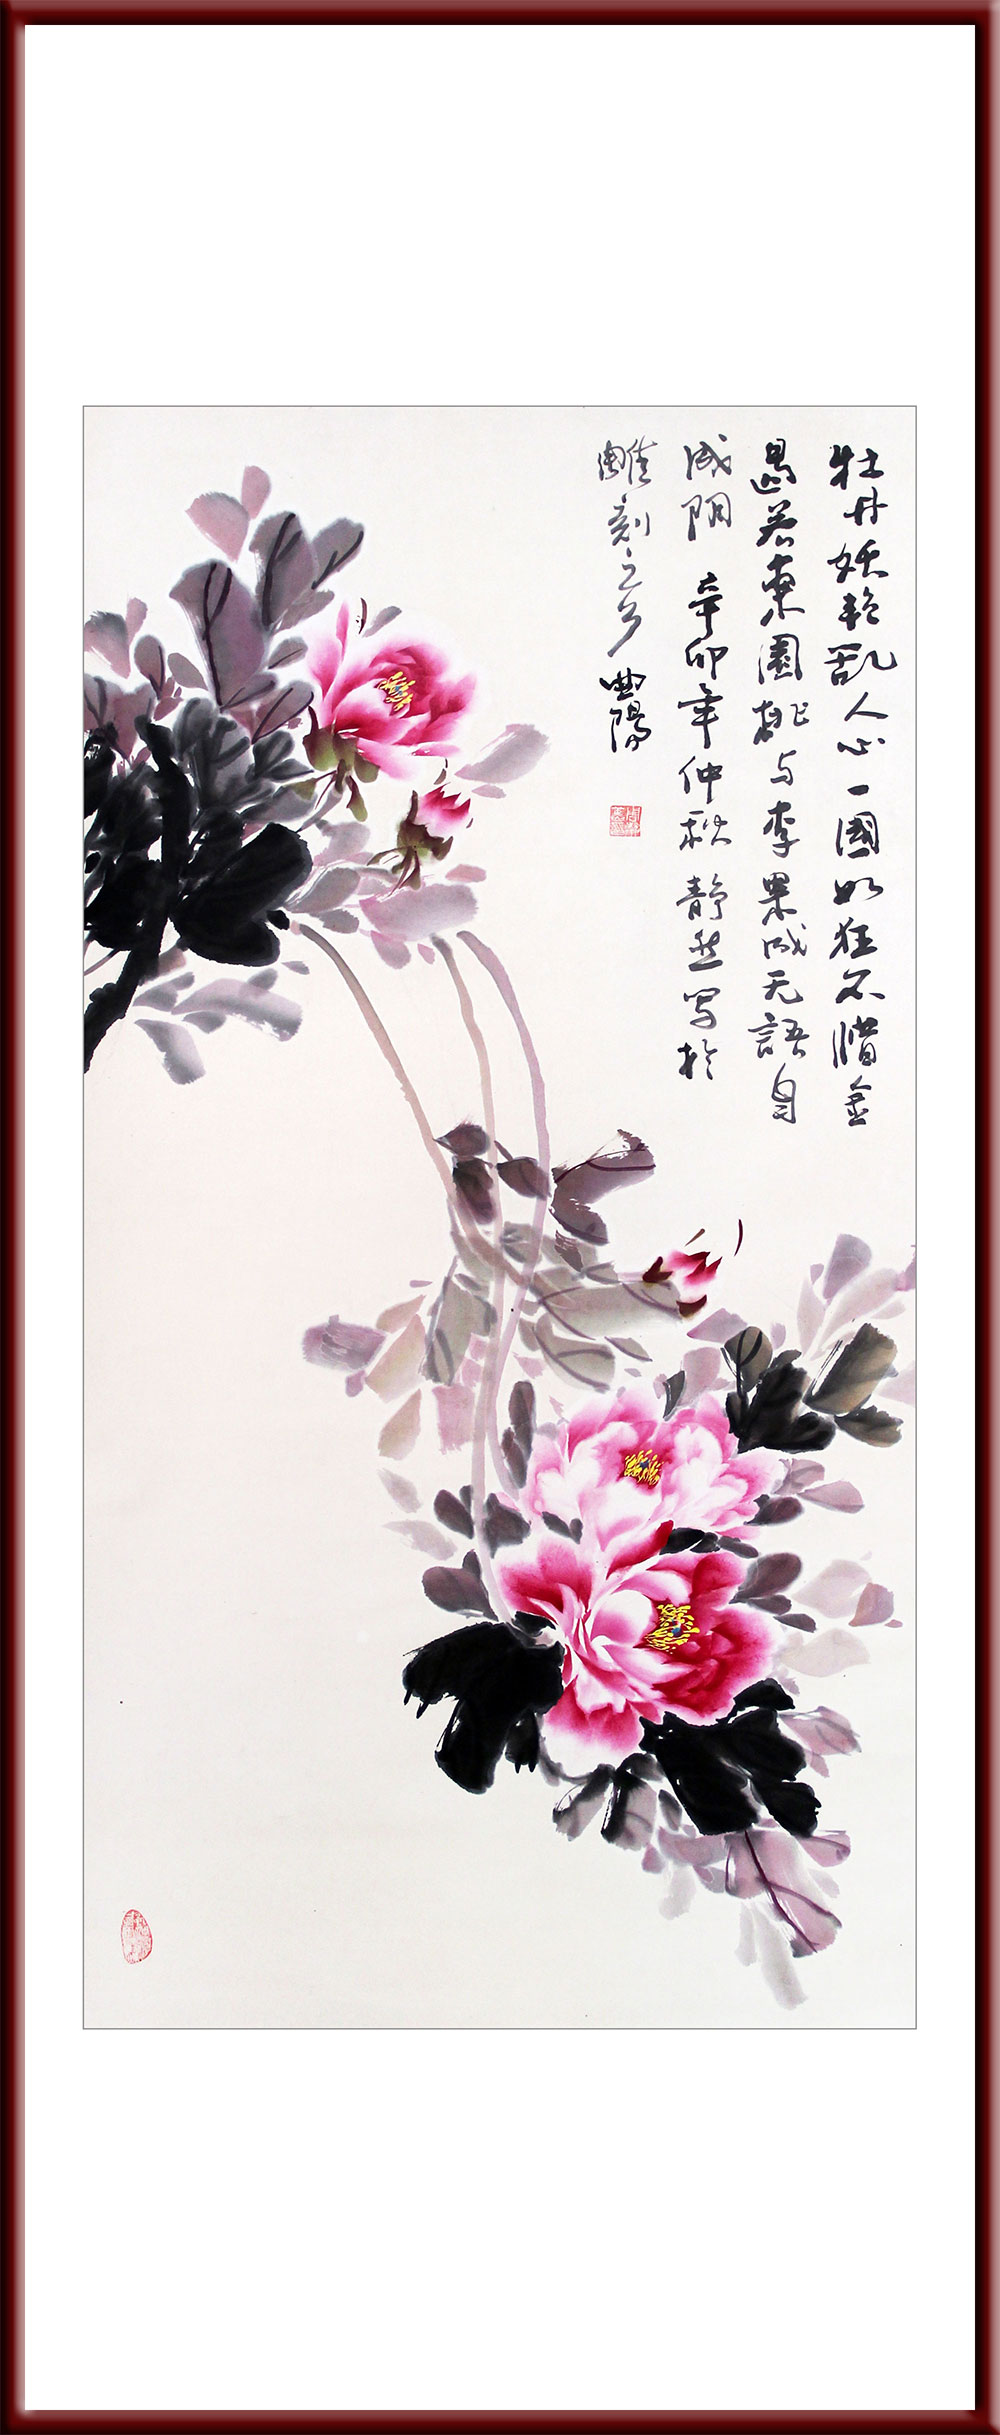 牡丹妖艳乱人心一國如狂不惜金
遏若東園桃与李果成无語自
成阴 辛卯年仲秋 静然写於
雕刻之乡 曲陽